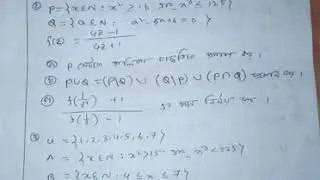 ② P = {x∈N : x² ≥ 16 এবং x³ ≤ 125}
Q = {x∈N : a² - 5a + 6 = 0}
f(z) = 4z - 1 / 4z + 1
P সেটকে তালিকা পদ্ধতিতে প্রকাশ কর।
P∪Q = (P\Q) ∪ (Q\P) ∪ (P∩Q) প্রমাণ কর।
f(1/z²) + 1 / f(1/z²) - 1 এর মান নির্ণয় কর।
③ U = {1,2,3,4,5,6,7}
A = {x∈N : x² > 15 এবং x³ < 225}
B = {x∈N : 4 ≤ x ≤ 7}